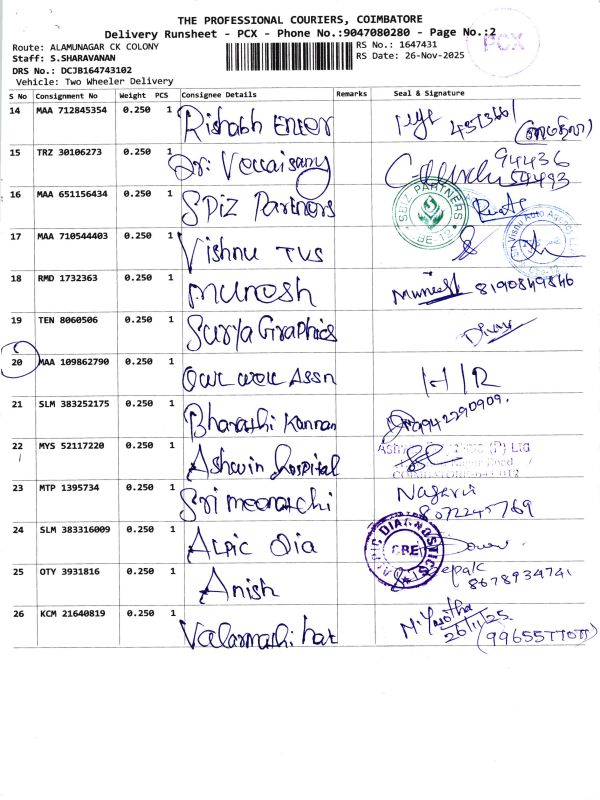 THE PROFESSIONAL COURIERS, COIMBATORE
Delivery Runsheet - PCX - Phone No.:9047080280 - Page No.:2
PCX
Route: ALAMUNAGAR CK COLONY
RS No.: 1647431
Staff: S.SHARAVANAN
RS Date: 26-Nov-2025
DRS No.: DCJB164743102
Vehicle: Two Wheeler Delivery
S No Consignment No Weight PCS Consignee Details Remarks Seal & Signature
14 MAA 712845354 0.250 1 Rishabh Enter
15 TRZ 30106273 0.250 1 94436
16 MAA 651156434 0.250 1 SPiZ Partners SEIZ PARTNERS CBE-12
17 MAA 710544403 0.250 1 Vishnu TVS
18 RMD 1732363 0.250 1 Munesh 8190849846
19 TEN 8060506 0.250 1 Surya Graphics
20 MAA 109862790 0.250 1 Assn
21 SLM 383252175 0.250 1 Bharathi Kannan
22 MYS 52117220 0.250 1 Ashwin hospital (P) Ltd
23 MTP 1395734 0.250 1 Sri meenatchi 8072245769
24 SLM 383316009 0.250 1 Alpic Dia ALPIC DIAGNOSTICS CBE
25 OTY 3931816 0.250 1 Anish 8678934741
26 KCM 21640819 0.250 1 26/11/25